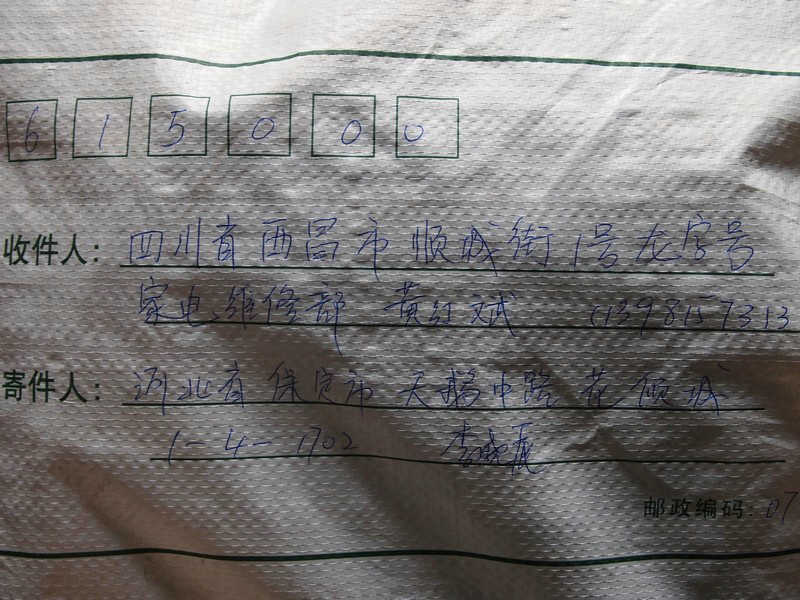 615000
收件人: 四川省西昌市顺城街1号龙字号
家电维修部 黄红斌 (1398157313
寄件人: 河北省保定市天鹅中路花倾城
1-4-1702 李晓霞
邮政编码: 07